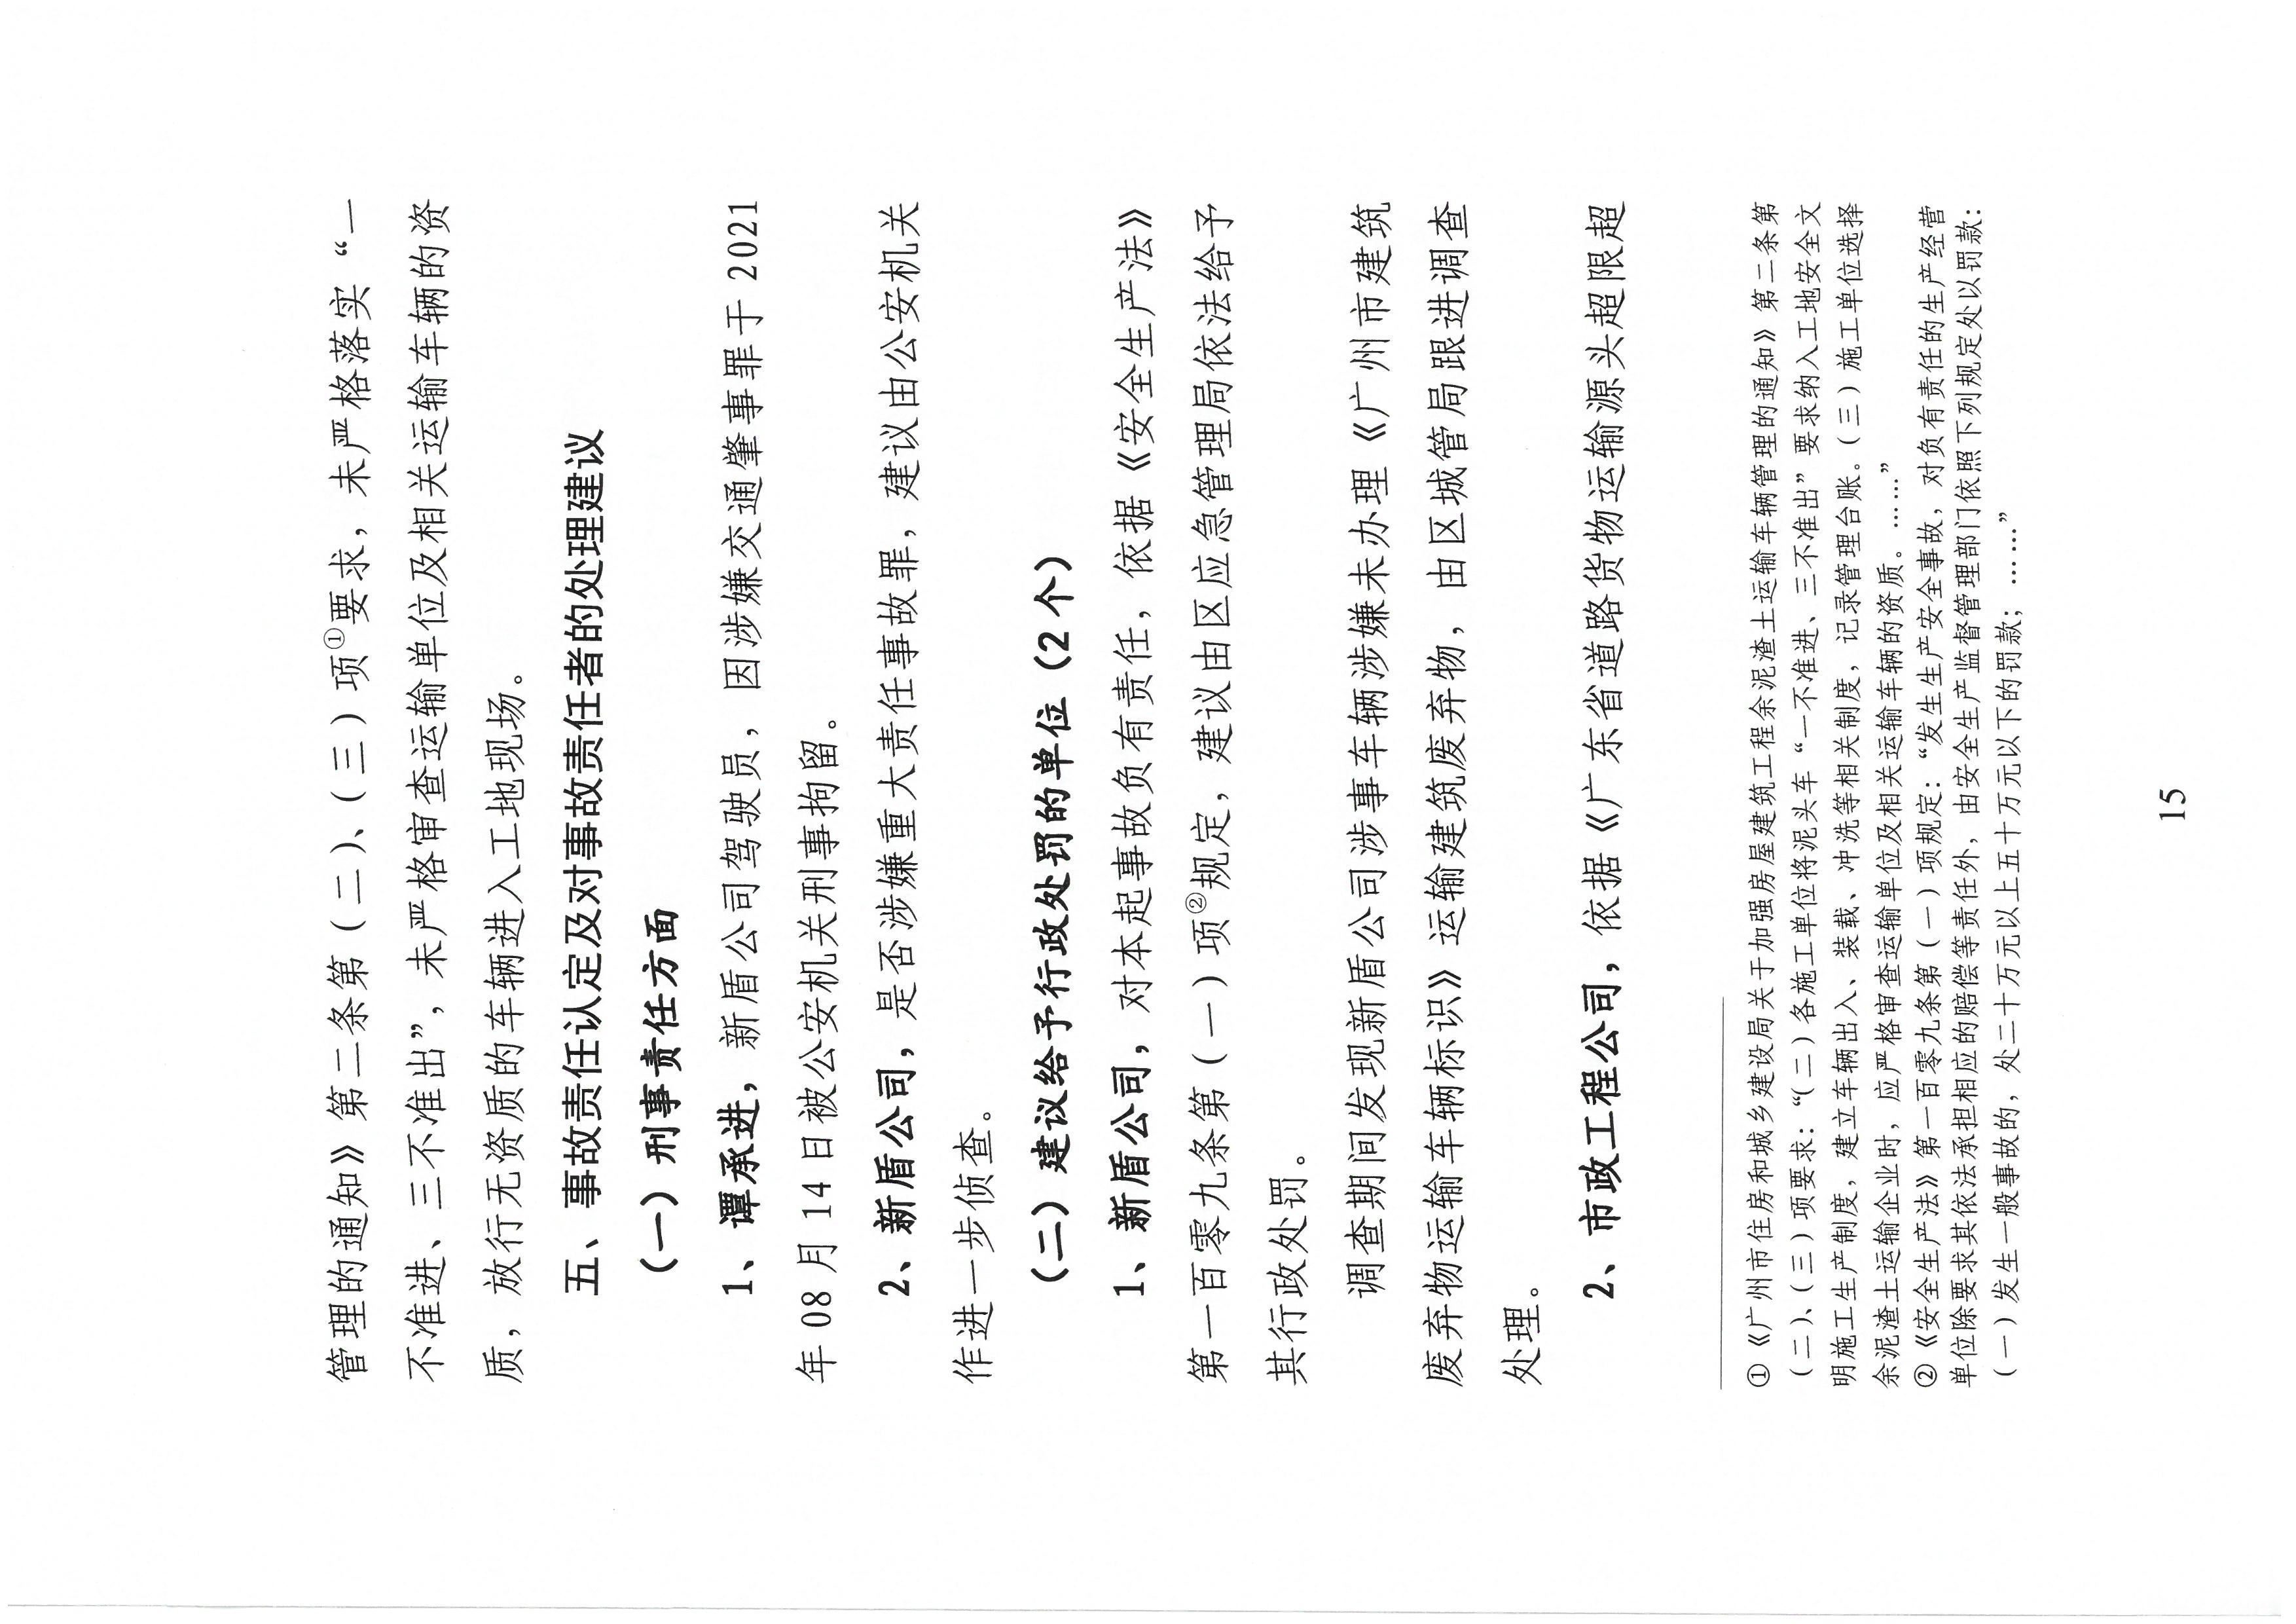 管理的通知》第二条第（二）、（三）项①要求，未严格落实“一
不准进、三不准出”，未严格审查运输单位及相关运输车辆的资
质，放行无资质的车辆进入工地现场。
五、事故责任认定及对事故责任者的处理建议
（一）刑事责任方面
1、谭承进，新盾公司驾驶员，因涉嫌交通肇事罪于 2021
年 08 月 14 日被公安机关刑事拘留。
2、新盾公司，是否涉嫌重大责任事故罪，建议由公安机关
作进一步侦查。
（二）建议给予行政处罚的单位（2 个）
1、新盾公司，对本起事故负有责任，依据《安全生产法》
第一百零九条第（一）项②规定，建议由区应急管理局依法给予
其行政处罚。
调查期间发现新盾公司涉事车辆涉嫌未办理《广州市建筑
废弃物运输车辆标识》运输建筑废弃物，由区城管局跟进调查
处理。
2、市政工程公司，依据《广东省道路货物运输源头超限超
①《广州市住房和城乡建设局关于加强房屋建筑工程余泥渣土运输车辆管理的通知》第二条第
（二）、（三）项要求：“（二）各施工单位将泥头车“一不准进、三不准出”要求纳入工地安全文
明施工生产制度，建立车辆出入、装载、冲洗等相关制度，记录管理台账。（三）施工单位选择
余泥渣土运输企业时，应严格审查运输单位及相关运输车辆的资质。……”
②《安全生产法》第一百零九条第（一）项规定：“发生生产安全事故，对负有责任的生产经营
单位除要求其依法承担相应的赔偿等责任外，由安全生产监督管理部门依照下列规定处以罚款：
（一）发生一般事故的，处二十万元以上五十万元以下的罚款；……”
15